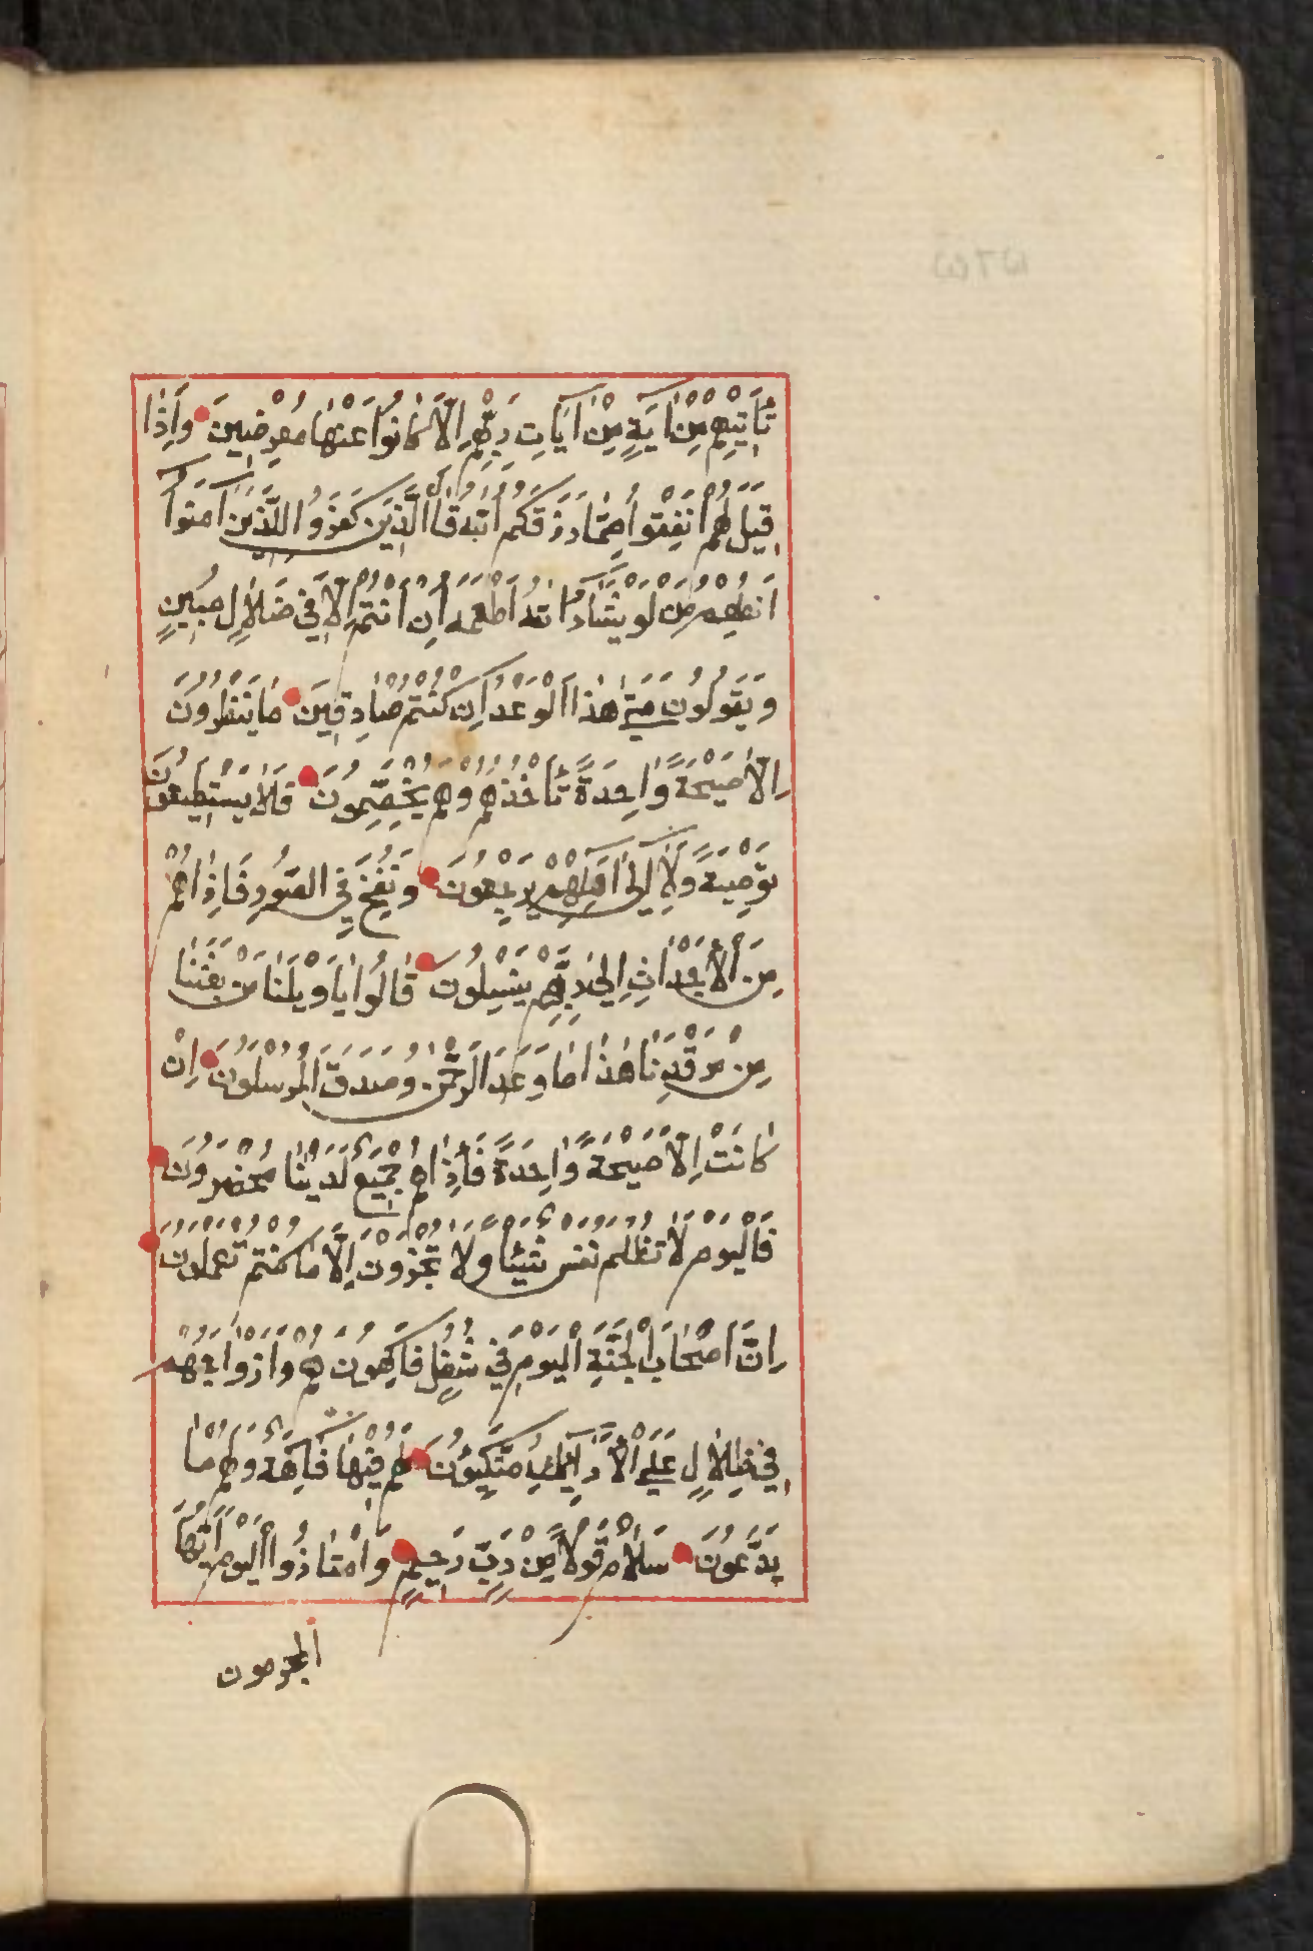 تَأْتِيهِمْ مِنْ اٰيَةٍ مِنْ اٰيَاتِ رَبِّهِمْ اِلَّا كَانُوا عَنْهَا مُعْرِضِينَ وَاِذَا
قِيلَ لَهُمْ اَنْفِقُوا مِمَّا رَزَقَكُمُ اللّٰهُ قَالَ الَّذِينَ كَفَرُوا لِلَّذِينَ اٰمَنُوا
اَنُطْعِمُ مَنْ لَوْ يَشَاءُ اللّٰهُ اَطْعَمَهُ اِنْ اَنْتُمْ اِلَّا فِي ضَلَالٍ مُبِينٍ
وَيَقُولُونَ مَتٰى هٰذَا الْوَعْدُ اِنْ كُنْتُمْ صَادِقِينَ مَا يَنْظُرُونَ
اِلَّا صَيْحَةً وَاحِدَةً تَأْخُذُهُمْ وَهُمْ يَخِصِّمُونَ فَلَا يَسْتَطِيعُونَ
تَوْصِيَةً وَلَا اِلٰى اَهْلِهِمْ يَرْجِعُونَ وَنُفِخَ فِي الصُّورِ فَاِذَا هُمْ
مِنَ الْاَجْدَاثِ اِلٰى رَبِّهِمْ يَنْسِلُونَ قَالُوا يَا وَيْلَنَا مَنْ بَعَثَنَا
مِنْ مَرْقَدِنَا هٰذَا مَا وَعَدَ الرَّحْمٰنُ وَصَدَقَ الْمُرْسَلُونَ اِنْ
كَانَتْ اِلَّا صَيْحَةً وَاحِدَةً فَاِذَا هُمْ جَمِيعٌ لَدَيْنَا مُحْضَرُونَ
فَالْيَوْمَ لَا تُظْلَمُ نَفْسٌ شَيْئًا وَلَا تُجْزَوْنَ اِلَّا مَا كُنْتُمْ تَعْمَلُونَ
اِنَّ اَصْحَابَ الْجَنَّةِ الْيَوْمَ فِي شُغُلٍ فَاكِهُونَ هُمْ وَاَزْوَاجُهُمْ
فِي ظِلَالٍ عَلَى الْاَرَائِكِ مُتَّكِؤُنَ لَهُمْ فِيهَا فَاكِهَةٌ وَلَهُمْ مَا
يَدَّعُونَ سَلَامٌ قَوْلًا مِنْ رَبٍّ رَحِيمٍ وَامْتَازُوا الْيَوْمَ اَيُّهَا
المجرمون